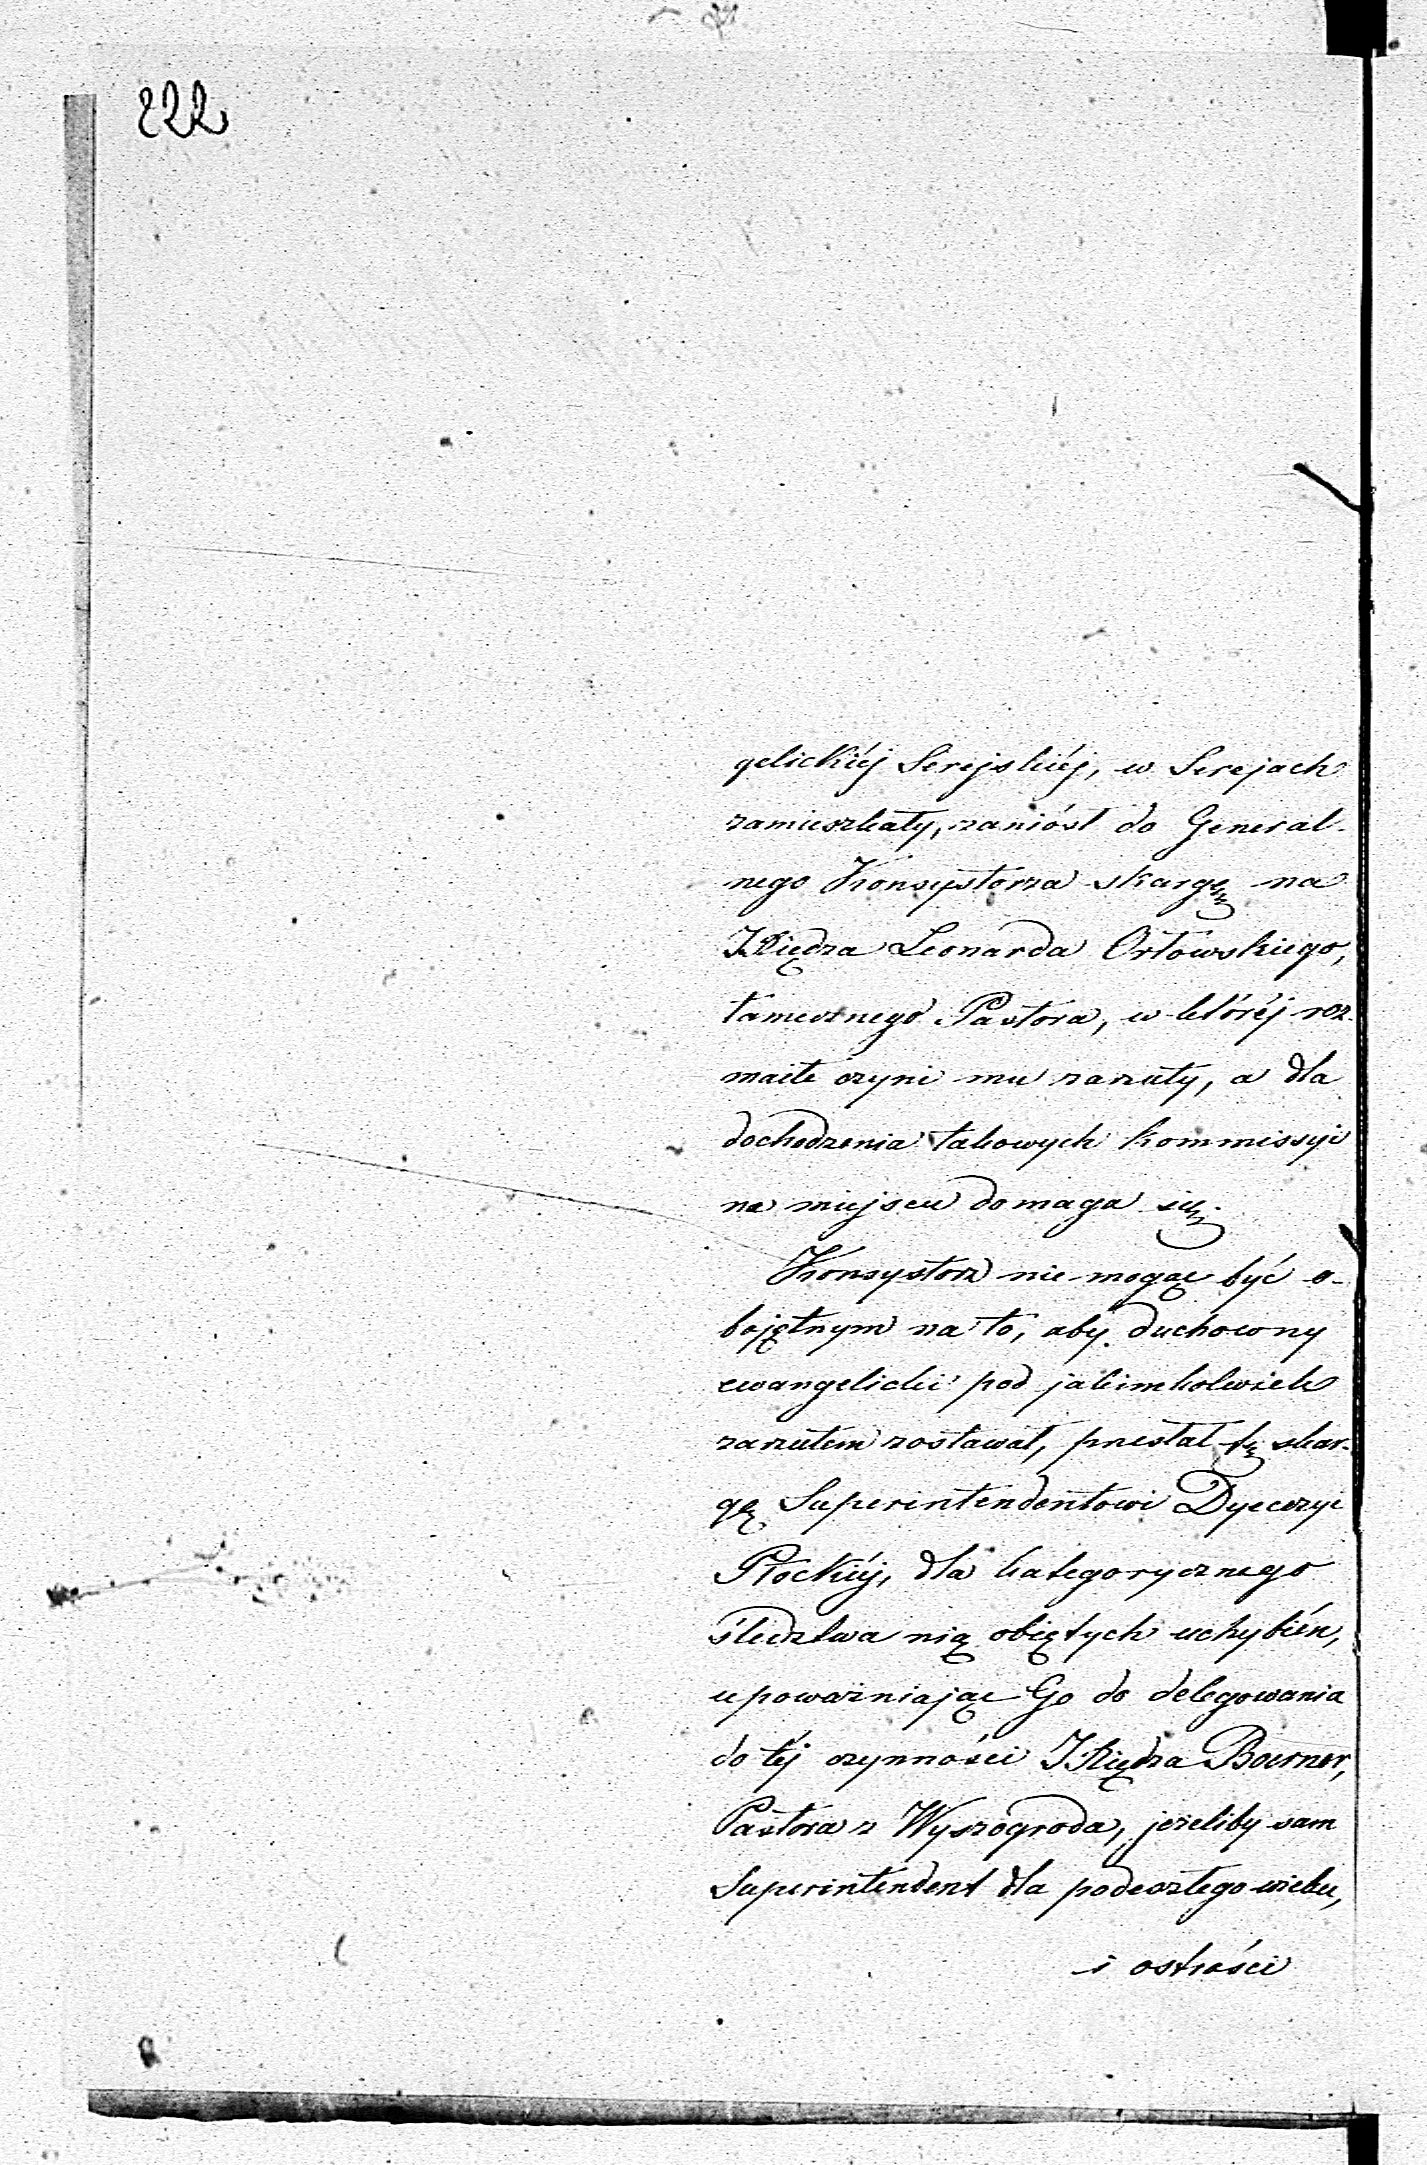 222
gelickiéj Serejskiéj, w Serejach
zamieszkały, zaniósł do General-
nego Konsystorza skargę na
JXiędza Leonarda Orłowskiego,
tamecznego Pastora, w któréj roz-
maite czyni mu zarzuty, a dla
dochodzenia takowych kommissyi
na miejscu domaga się.
Konsystorz nie mogąc być o-
bojętnym na to, aby duchowny
ewangelicki pod jakimkolwiek
zarzutem zostawał, przesłał tę skar-
gę Superintendentowi Dyecezyi
Płockiéj, dla kategorycznego
śledztwa nią objętych uchybień,
upoważniając Go do delegowania
do téj czynności JXiędza Boerner,
Pastora z Wyszogroda, jeżeliby sam
Superintendent dla podeszłego wieku,
i ostrości